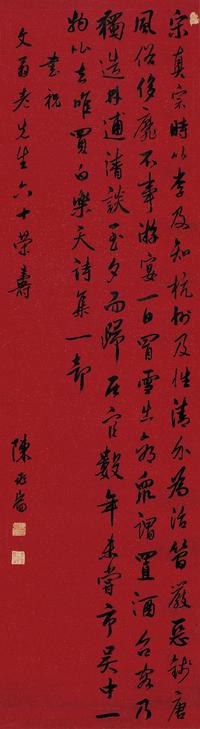 宋真宗時以李及知杭州及性清介為治簡嚴惡錢唐
風俗侈靡不事游宴一日冒雪出郊眾謂置酒召客乃
獨造林逋清談至夕而歸居官數年未嘗市吳中一
物比去唯買白樂天詩集一部
書祝
文翁老先生六十榮壽
陳兆崙